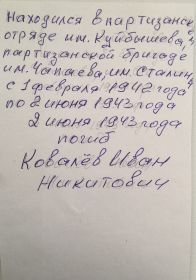 Находился в партизанском
отряде им. Куйбышева,
партизанской бригаде
им. Чапаева, им. Сталина
с 1 февраля 1942 года
по 2 июня 1943 года
2 июня 1943 года
погиб
Ковалёв Иван
Никитович